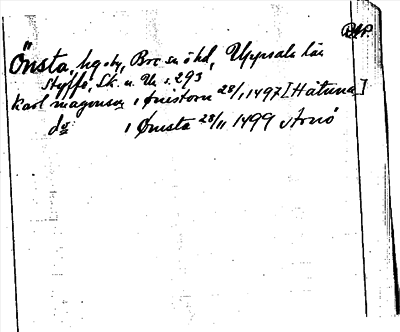 RAP.
Önsta, hg o by, Bro sn o hd, Uppsala län
Styffe, Sk. u. Un s. 293
Karl magonson i Ønistom 28/1 1497 [Håtuna]
do i Ønsta 28/11 1499 Arnö